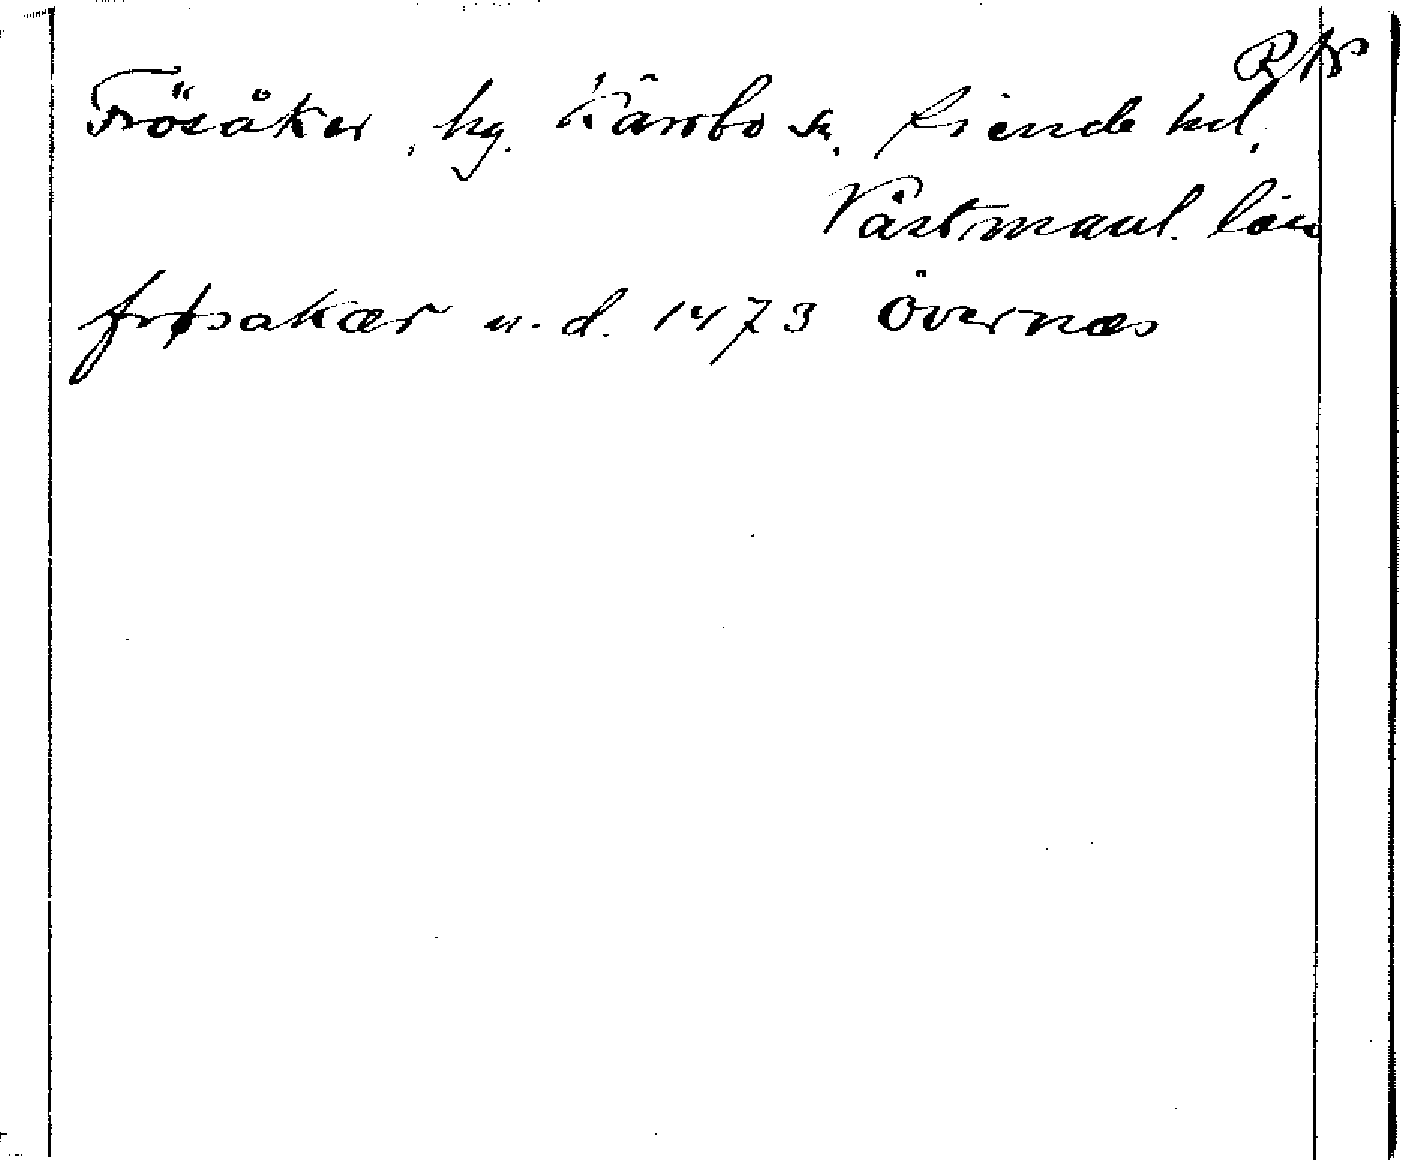 Frösåker, hg. Kärrbo sn. Siende hd.
Västmanl. län
frøsakær u. d. 1473 Övernæs